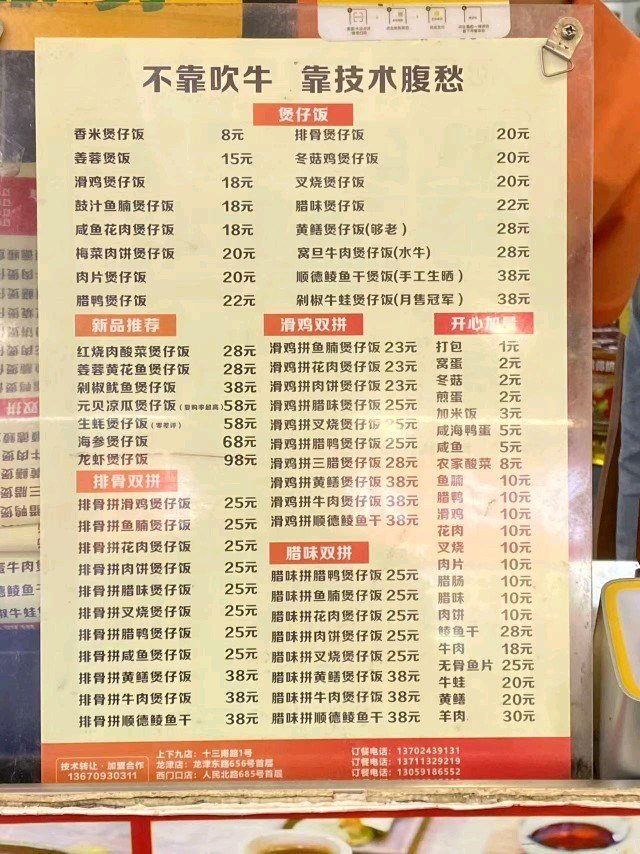 不靠吹牛 靠技术腹愁
煲仔饭
香米煲仔饭 8元
姜蓉煲饭 15元
滑鸡煲仔饭 18元
鼓汁鱼腩煲仔饭 18元
咸鱼花肉煲仔饭 18元
梅菜肉饼煲仔饭 20元
肉片煲仔饭 20元
腊鸭煲仔饭 22元
排骨煲仔饭 20元
冬菇鸡煲仔饭 20元
叉烧煲仔饭 20元
腊味煲仔饭 22元
黄鳝煲仔饭(够老) 28元
窝旦牛肉煲仔饭(水牛) 28元
顺德鲮鱼干煲饭(手工生晒) 38元
剁椒牛蛙煲仔饭(月售冠军) 38元
新品推荐
红烧肉酸菜煲仔饭 28元
姜蓉黄花鱼煲仔饭 28元
剁椒鱿鱼煲仔饭 38元
元贝凉瓜煲仔饭(复购率超高) 58元
生蚝煲仔饭(零差评) 58元
海参煲仔饭 68元
龙虾煲仔饭 98元
排骨双拼
排骨拼滑鸡煲仔饭 25元
排骨拼鱼腩煲仔饭 25元
排骨拼花肉煲仔饭 25元
排骨拼肉饼煲仔饭 25元
排骨拼腊味煲仔饭 25元
排骨拼叉烧煲仔饭 25元
排骨拼腊鸭煲仔饭 25元
排骨拼咸鱼煲仔饭 25元
排骨拼黄鳝煲仔饭 38元
排骨拼牛肉煲仔饭 38元
排骨拼顺德鲮鱼干 38元
滑鸡双拼
滑鸡拼鱼腩煲仔饭 23元
滑鸡拼花肉煲仔饭 23元
滑鸡拼肉饼煲仔饭 23元
滑鸡拼腊味煲仔饭 25元
滑鸡拼叉烧煲仔饭 25元
滑鸡拼腊鸭煲仔饭 25元
滑鸡拼三腊煲仔饭 28元
滑鸡拼黄鳝煲仔饭 38元
滑鸡拼牛肉煲仔饭 38元
滑鸡拼顺德鲮鱼干 38元
腊味双拼
腊味拼腊鸭煲仔饭 25元
腊味拼鱼腩煲仔饭 25元
腊味拼花肉煲仔饭 25元
腊味拼肉饼煲仔饭 25元
腊味拼叉烧煲仔饭 25元
腊味拼黄鳝煲仔饭 38元
腊味拼牛肉煲仔饭 38元
腊味拼顺德鲮鱼干 38元
开心加
打包 1元
窝蛋 2元
冬菇 2元
煎蛋 2元
加米饭 3元
咸海鸭蛋 5元
咸鱼 5元
农家酸菜 8元
鱼腩 10元
腊鸭 10元
滑鸡 10元
花肉 10元
叉烧 10元
肉片 10元
腊肠 10元
腊味 10元
肉饼 10元
鲮鱼干 28元
牛肉 18元
无骨鱼片 25元
牛蛙 20元
黄鳝 20元
羊肉 30元
技术转让·加盟合作
13670930311
上下九店：十三甫路1号
龙津店：龙津东路656号首层
西门口店：人民北路685号首层
订餐电话：13702439131
订餐电话：13711329219
订餐电话：13059186552